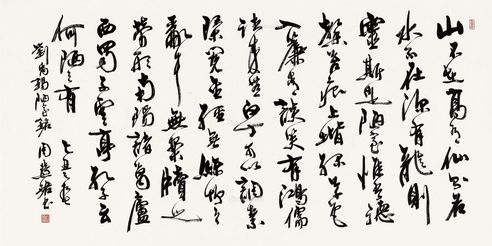 山不在高有仙則名
水不在深有龍則
靈斯是陋室惟吾德
馨苔痕上階綠草色
入簾青談笑有鴻儒
往來無白丁可以調素
琴閱金經無絲竹之
亂耳無案牘之
勞形南陽諸葛廬
西蜀子雲亭孔子云
何陋之有
劉禹錫陋室銘 周慧珺書